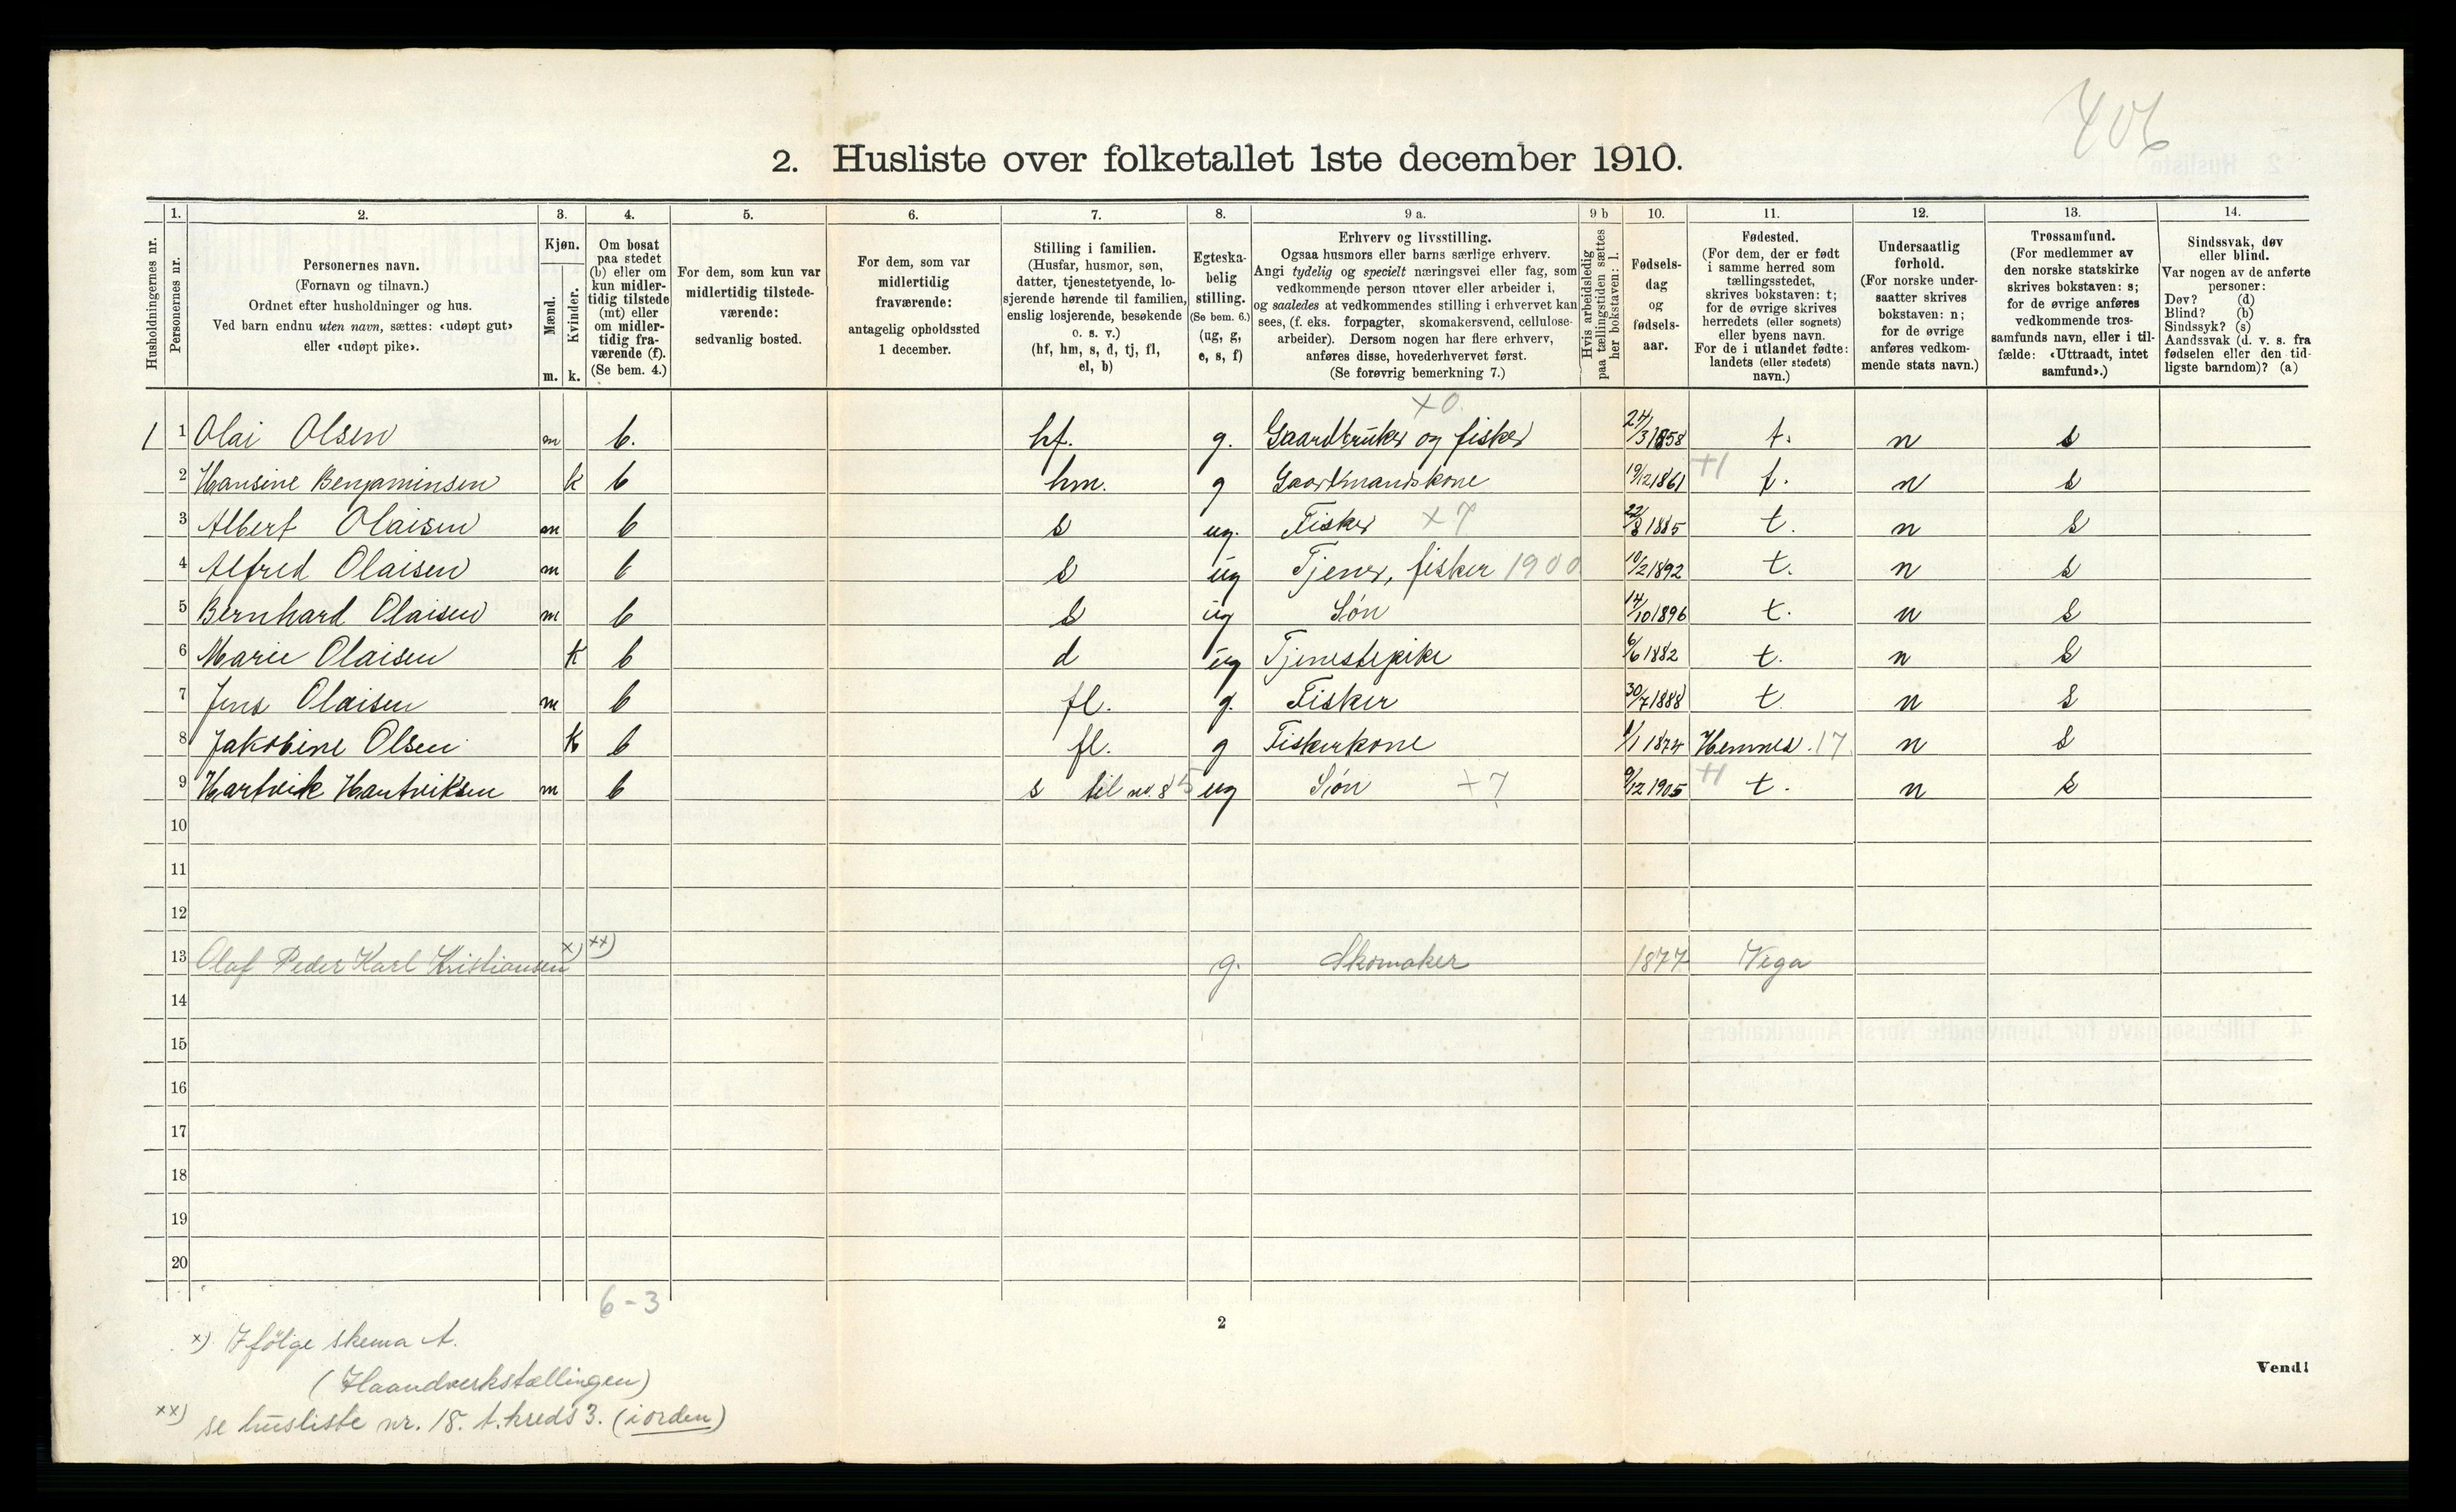 406
2. Husliste over folketallet 1ste december 1910.
Husholdningernes nr.
1.
Personernes nr.
2.
Personernes navn.
(Fornavn og tilnavn.)
Ordnet efter husholdninger og hus.
Ved barn endnu uten navn, sættes: «udøpt gut»
eller «udøpt pike».
3.
Kjøn.
Mænd.
Kvinder.
m. k.
4.
Om bosat
paa stedet
(b) eller om
kun midler-
tidig tilstede
(mt) eller
om midler-
tidig fra-
værende (f).
(Se bem. 4.)
5.
For dem, som kun var
midlertidig tilstede-
værende:
sedvanlig bosted.
6.
For dem, som var
midlertidig
fraværende:
antagelig opholdssted
1 december.
7.
Stilling i familien.
(Husfar, husmor, søn,
datter, tjenestetyende, lo-
sjerende hørende til familien,
enslig losjerende, besøkende
o. s. v.)
(hf, hm, s, d, tj, fl,
el, b)
8.
Egteska-
belig
stilling.
(Se bem. 6.)
(ug, g,
e, s, f)
9 a.
Erhverv og livsstilling.
Ogsaa husmors eller barns særlige erhverv.
Angi tydelig og specielt næringsvei eller fag, som
vedkommende person utøver eller arbeider i,
og saaledes at vedkommendes stilling i erhvervet kan
sees, (f. eks. forpagter, skomakersvend, cellulose-
arbeider). Dersom nogen har flere erhverv,
anføres disse, hovederhvervet først.
(Se forøvrig bemerkning 7.)
9 b
Hvis arbeidsledig
paa tællingstiden sættes
her bokstaven: l.
10.
Fødsels-
dag
og
fødsels-
aar.
11.
Fødested.
(For dem, der er født
i samme herred som
tællingsstedet,
skrives bokstaven: t;
for de øvrige skrives
herredets (eller sognets)
eller byens navn.
For de i utlandet fødte:
landets (eller stedets)
navn.)
12.
Undersaatlig
forhold.
(For norske under-
saatter skrives
bokstaven: n;
for de øvrige
anføres vedkom-
mende stats navn.)
13.
Trossamfund.
(For medlemmer av
den norske statskirke
skrives bokstaven: s;
for de øvrige anføres
vedkommende tros-
samfunds navn, eller i til-
fælde: «Uttraadt, intet
samfund».)
14.
Sindssvak, døv
eller blind.
Var nogen av de anførte
personer:
Døv? (d)
Blind? (b)
Sindssyk? (s)
Aandssvak (d. v. s. fra
fødselen eller den tid-
ligste barndom)? (a)
x0.
1 1 Olai Olsen m b. hf. g. Gaardbruker og fisker 24/3 1858 t. n s
2 Hansine Benjaminsen k b hm. g Gaardmandskone 19/12 1861 +1 t. n s
3 Albert Olaisen m b s ug. Fisker x7 22/8 1885 t. n s
4 Alfred Olaisen m b s ug Tjener, fisker 1900 10/2 1892 t. n s
5 Bernhard Olaisen m b s ug Søn 14/10 1896 t. n s
6 Marie Olaisen k b d ug Tjenestepike 6/6 1882 t. n s
7 Jens Olaisen m b fl. g. Fisker 30/7 1888 t. n s
8 Jakobine Olsen k b fl. g Fiskerkone 1/1 1874 Hemnes. 17 n s
9 Hartvik Hartviksen m b s til nr. 8 5 ug Søn +7 9/12 1905 +1 t. n s
10
11
12
13 Olaf Peder Karl Kristiansen x) xx) g. Skomaker 1877 Vega
14
15
16
17
18
19
20
6-3
x) Ifølge skema A.
(Haandverkstællingen)
xx) se husliste nr. 18. t. kreds 3. (i orden)
2
Vend!